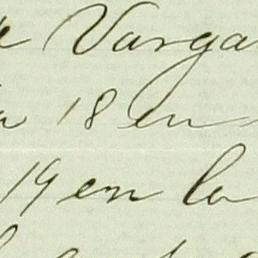 Varga
18 en
19 en la